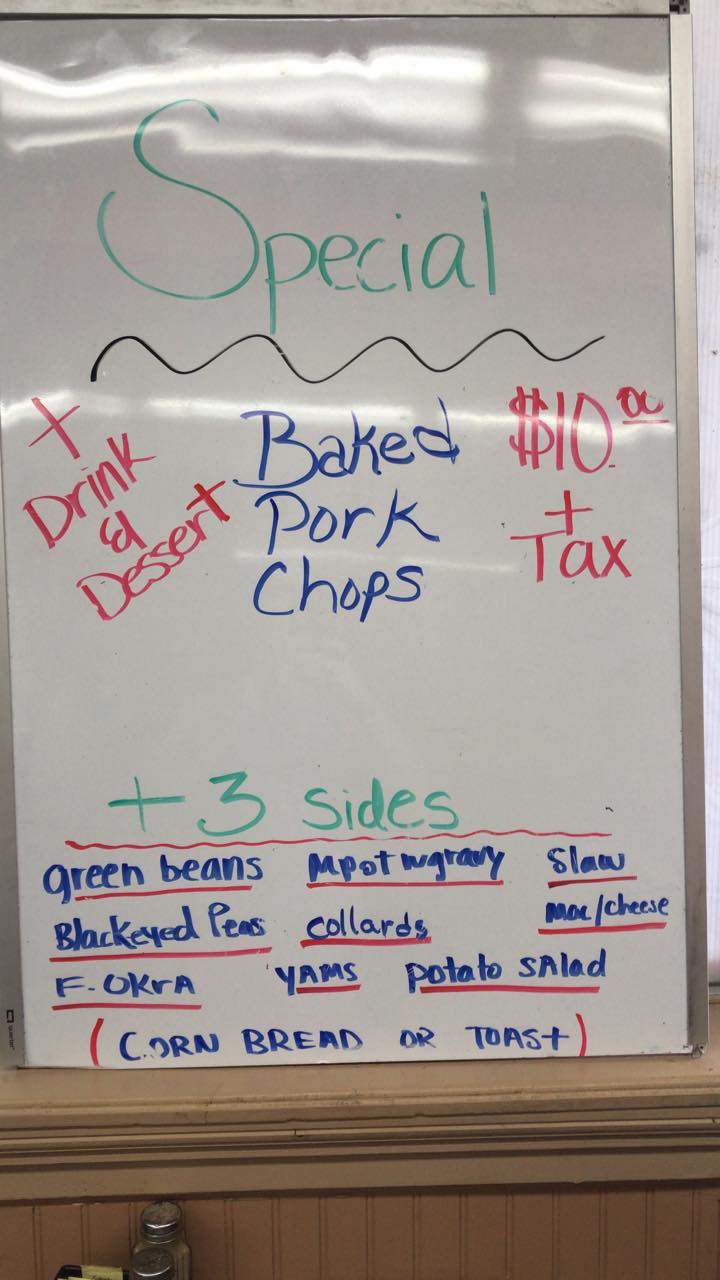 Special
+
Drink
&
Dessert
Baked
Pork
Chops
$10.00
+
Tax
+ 3 sides
green beans mpot w gravy Slaw
Blackeyed Peas collards mac/cheese
F. OKrA YAMS potato SAlad
(CORN BREAD OR TOAST)